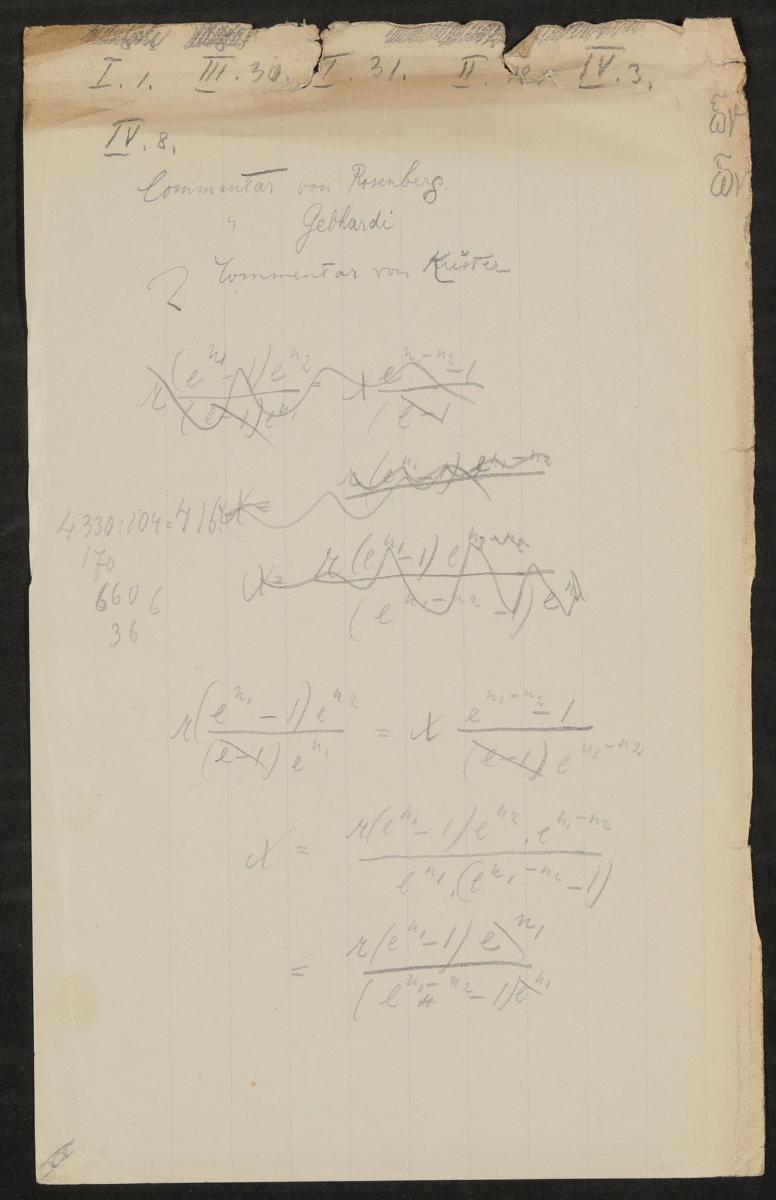 I. 1. III. 30. I. 31. II. IV. 3.
IV. 8.
ὧν
ὧν
Commentar von Rosenberg.
" Gebhardi
Commentar von Küster
r (e^{n_1} - 1) e^{n_2} / (e-1) e^{n_1} = x e^{n_1-n_2} - 1 / (e-1
r (e^{n_1} - 1) e^{n_1-n_2}
x =
4330:104=416
170
660 6
36
x = r (e^{n_1} - 1) e / (e^{n_1-n_2} - 1) e^{n_1}
r (e^{n_1} - 1) e^{n_2} / (e-1) e^{n_1} = x e^{n_1-n_2} - 1 / (e-1) e^{n_1-n_2}
x = r(e^{n_1} - 1) e^{n_2} . e^{n_1-n_2} / e^{n_1} . (e^{n_1-n_2} - 1)
= r(e^{n_1} - 1) e^{n_1} / (e^{n_1-n_2} - 1) e^{n_1}